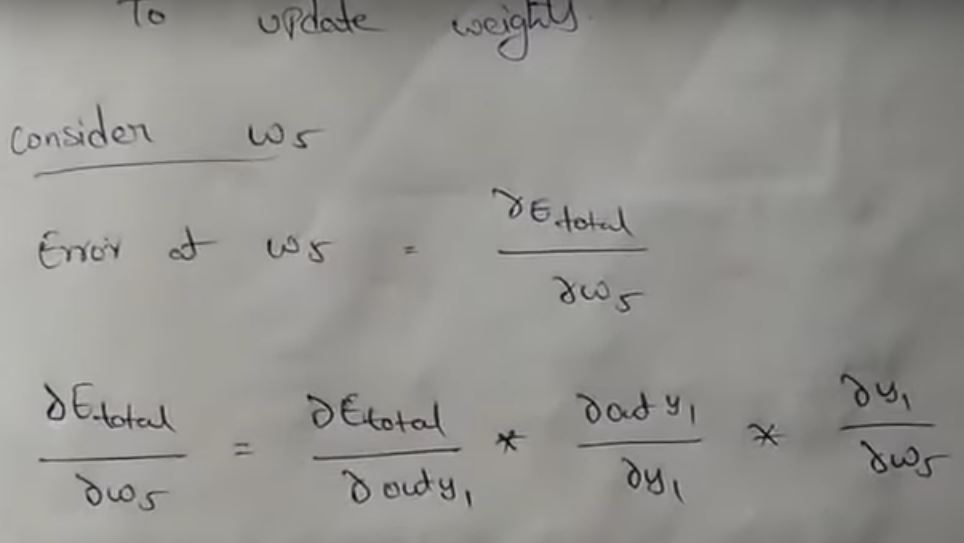 To update weights.
Consider w5
Error at w5 = ∂Etotal / ∂w5
∂Etotal / ∂w5 = ∂Etotal / ∂out y1 * ∂out y1 / ∂y1 * ∂y1 / ∂w5